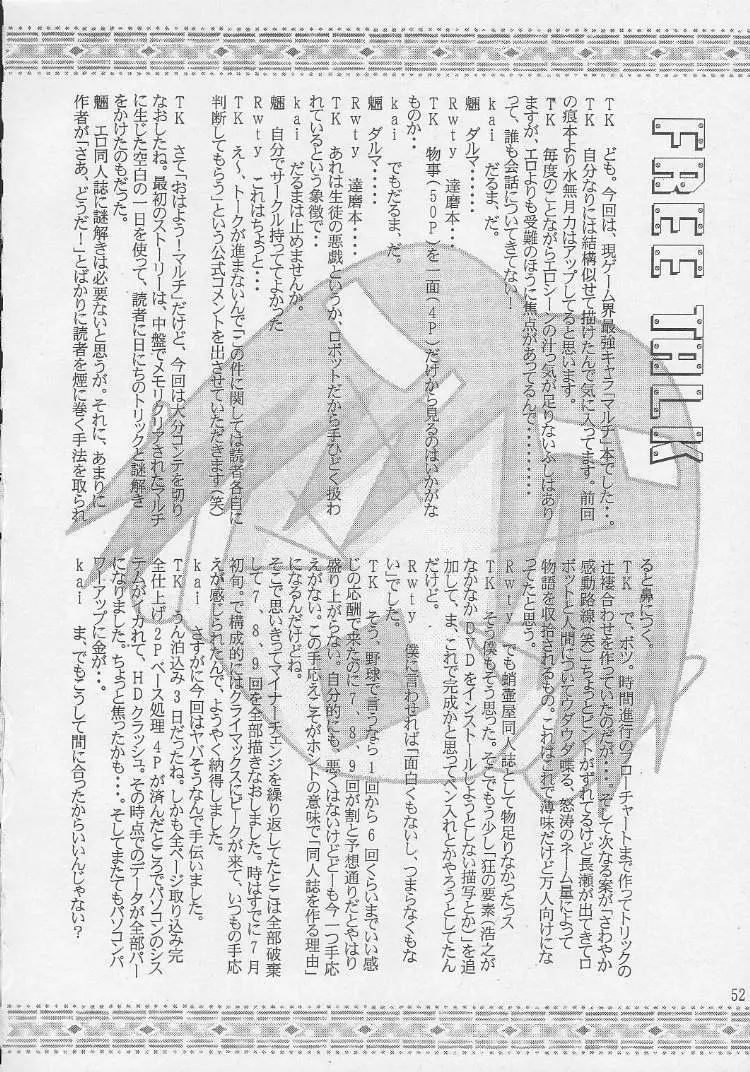 FREE TALK
TK　ども。今回は、現ゲーム界最強キャラ「マルチ」本でした・・。
TK　自分なりには結構似せて描けたんで気に入ってます。前回
の痕本より水無月力はアップしてると思います。
TK　毎度のことながらエロシーンの汁っ気が足りないふしはあり
ますが、エロよりも受難のほうに焦点があってるんで・・・・・・・・・
って、誰も会話についてきてない！
kai　だるま、だ。
魎　ダルマ・・・・・
Rwty　達磨本・・・・
TK　物事(50P)を一面(4P)だけから見るのはいかがな
ものか・・
kai　でもだるま、だ。
魎　ダルマ・・・・・
Rwty　達磨本・・・・
TK　あれは生徒の悪戯というか、ロボットだから手ひどく扱わ
れているという象徴で・・
kai　だるまは止めませんか。
魎　自分でサークル持っててよかった
Rwty　これはちょっと・・・
TK　え～、トークが進まないんで「この件に関しては読者各自に
判断してもらう」という公式コメントを出させていただきます(笑)
TK　さて「おはよう！マルチ」だけど、今回は大分コンテを切り
なおしたね。最初のストーリーは、中盤でメモリクリアされたマルチ
に生じた空白の一日を使って、読者に日にちのトリックと謎解き
をかけたのもだった。
魎　エロ同人誌に謎解きは必要ないと思うが。それに、あまりに
作者が「さあ、どうだ！」とばかりに読者を煙に巻く手法を取られ
ると鼻につく。
TK　で、ボツ。時間進行のフローチャートまで作ってトリックの
辻褄合わせを作っていたのだが・・・・。そして次なる案が「さわやか
感動路線(笑)」ちょっとピントがずれてるけど長瀬が出てきてロ
ボットと人間についてウダウダ喋る、怒涛のネーム量によって
物語を収拾されるもの。これはこれで薄味だけど万人向けにな
ってたと思う。
Rwty　でも蛸壷屋同人誌として物足りなかったっス
TK　そう僕もそう思った。そこでもう少し「狂の要素(浩之が
なかなかDVDをインストールしようとしない描写とか)」を追
加して、ま、これで完成かと思ってペン入れとかやろうとしてたん
だけど。
Rwty　僕に言わせれば「面白くもないし、つまらなくもな
い」でした。
TK　そう、野球で言うなら1回から6回くらいまでいい感
じの応酬で来たのに7、8、9回が割と予想通りだとやはり
盛り上がらない。自分的にも。悪くはないけどどーも今一つ手応
えがない。この手応えこそがホントの意味で「同人誌を作る理由」
になるんだけどね。
そこで思いきってマイナーチェンジを繰り返してたとこは全部破棄
して7、8、9回を全部描きなおしました。時はすでに7月
初旬。で構成的にはクライマックスにピークが来て、いつもの手応
えが感じられたんで、ようやく納得しました。
kai　さすがに今回はヤバそうなんで手伝いました。
TK　うん泊込み3日だったね。しかも全ページ取り込み完
全仕上げ2Pベース処理4Pが済んだところでパソコンのシス
テムがイカれて、HDクラッシュ。その時点でのデータが全部パー
になりました。ちょっと焦ったかも・・・。そしてまたてもパソコンパ
ワーアップに金が・・。
kai　ま、でもこうして間に合ったからいいんじゃない？
52